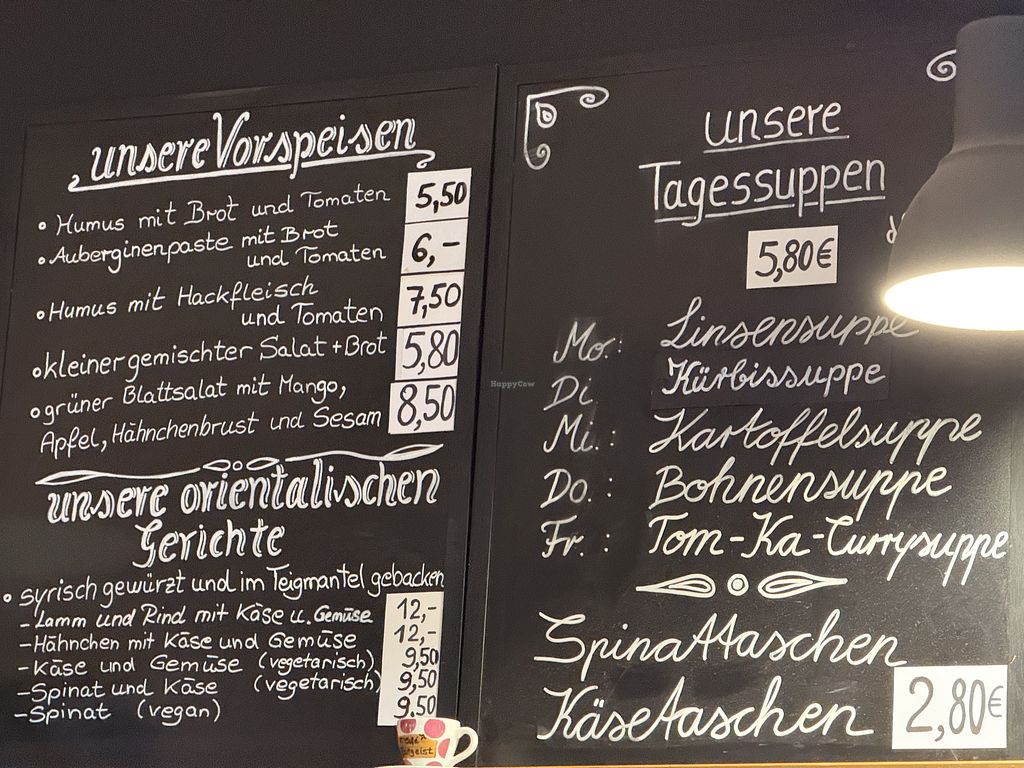 unsere Vorspeisen
• Humus mit Brot und Tomaten 5,50
• Auberginenpaste mit Brot
und Tomaten 6,-
• Humus mit Hackfleisch
und Tomaten 7,50
• kleiner gemischter Salat + Brot 5,80
• grüner Blattsalat mit Mango,
Apfel, Hähnchenbrust und Sesam 8,50
unsere orientalischen
Gerichte
• syrisch gewürzt und im Teigmantel gebacken
- Lamm und Rind mit Käse u. Gemüse 12,-
- Hähnchen mit Käse und Gemüse 12,-
- Käse und Gemüse (vegetarisch) 9,50
- Spinat und Käse (vegetarisch) 9,50
- Spinat (vegan) 9.50
unsere
Tagessuppen
5,80€
Mo.: Linsensuppe
Di Kürbissuppe
Mi.: Kartoffelsuppe
Do.: Bohnensuppe
Fr.: Tom-Ka-Currysuppe
Spinattaschen
Käsetaschen 2,80€
HappyCow
Café